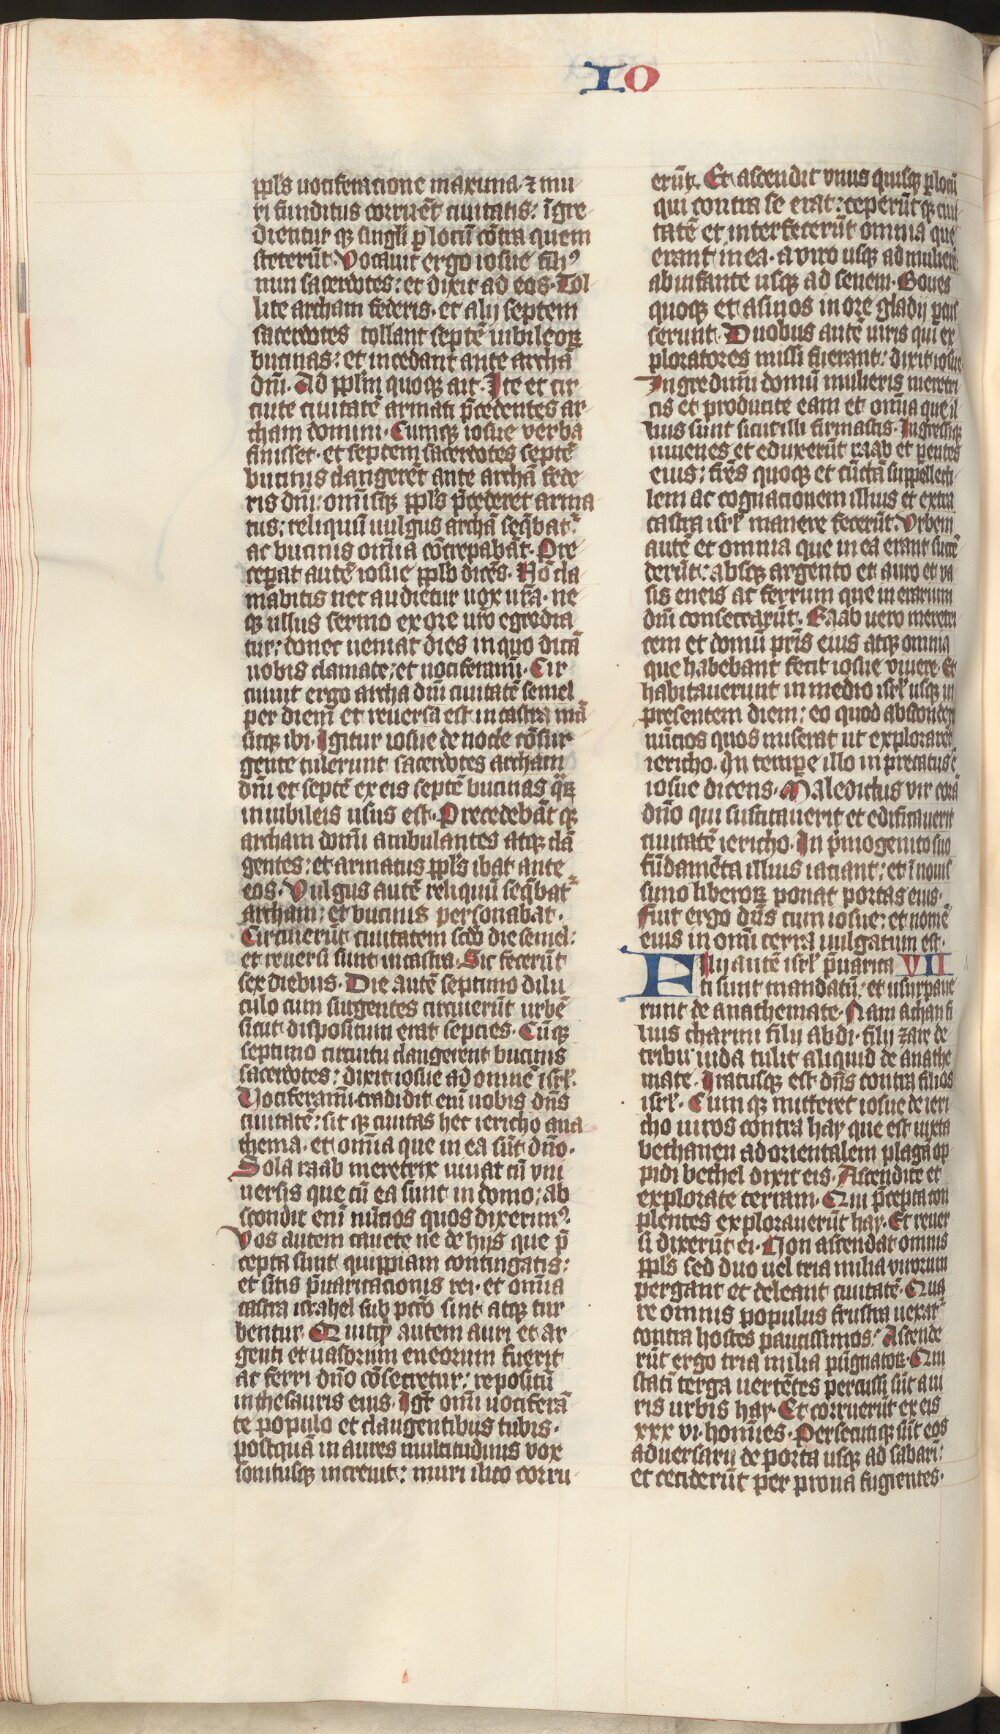 IO
ppl̄s uociferatione maxima· ⁊ mu
ri funditus corruēt ciuitatis: īgre
dientur qꝫ singl̄i ꝑ locū cōtra quem
steterūt· Vocauit ergo iosue fili9
nun sacerdotes: et dixit ad eos· Tol
lite archam federis· et alij septem
sacerdotes tollant septē iubileoꝝ
bucinas: et incedant ante archā
dn̄i· Ad ppl̄m quoqꝫ ait· Ite et cir
cuite ciuitatē armati p̄cedentes ar
cham domini· Cumqꝫ iosue verba
finisset· et septem sacerdotes septē
bucinis clangerēt ante archā fede
ris dn̄i: omīsqꝫ ppl̄s p̄cederet arma
tus: reliquū uulgus archā seq̄bat᷑
ac bucinis om̄ia cōcrepabāt· Pre
ceperat autē iosue ppl̄o dicēs· Nō cla
mabitis nec audietur uox vr̄a· ne
qꝫ ullus sermo ex ore vr̄o egredia
tur: donec ueniat dies in quo dicā
uobis clamate: et uociferami· Cir
cuiuit ergo archa dn̄i ciuitatē semel
per diem et reuersa est in castra mā
sitqꝫ ibi· Igitur iosue de nocte cōsur
gente tulerunt sacerdotes archam
dn̄i et septē ex eis septē bucinas q̄ꝝ
in iubileis usus est· Precedebāt qꝫ
archam dom̄i ambulantes atqꝫ clā
gentes: et armatus ppl̄s ibat ante
eos· Vulgus autē reliquū seq̄bat᷑
archam: et bucinis personabat·
Circuierūt ciuitatem scd̄o die semel:
et reuersi sunt in castra· Sic fecerūt
sex diebus· Die autē septimo dilu
culo cum surgentes circuierūt urbē
sicut dispositum erat septies· Cūqꝫ
septimo circuitu clangerent bucinis
sacerdotes: dixit iosue ad omnē isrl̄·
Vociferami tradidit eni uobis dn̄s
ciuitatē: sit qꝫ ciuitas hec iericho ana
thema· et om̄ia que in ea sūt dn̄o·
Sola raab meretrix uiuat cū vni
uersis que cū ea sunt in domo: ab
scondit eni nūcios quos direxim9·
Vos autem cauete ne de hijs que p̄
cepta sunt quippiam contingatis:
et sitis p̄uaricacionis rei· et om̄ia
castra israhel sub pctō sint atqꝫ tur
bentur· Quitqͥd autem auri et ar
genti et uasorum eneorum fuerit
ac ferri dn̄o cōsecretur: repositū
in thesauris eius· Igr̄ om̄i uociferā
te populo et clangentibus tubis·
postquā in aures multitudinis vox
sonitusqꝫ increuit: muri ilico corru
erūt· Et ascendit vnus quisqꝫ ꝑ locū
qui contra se erat: ceperūt qꝫ ciui
tatē et interfecerūt omnia que
erant in ea· a viro usqꝫ ad mulierē
ab infante usqꝫ ad senem· Boues
quoqꝫ et asinos in ore gladij ꝑcus
serunt· Duobus autē uiris qui ex
ploratores missi fuerant: dixit iosue
Ingredimī domū mulieris meretri
cis et producite eam et om̄ia que il
lius sunt sicut illi firmastis· Ingressiqꝫ
iuuenes et eduxerūt raab et pentes
eius: frēs quoqꝫ et cūctā suppellecti
lem ac cognacionem illius et extra
castra isrl̄ manere fecerūt· Vrbem
autē et omnia que in ea erant succē
derūt: absqꝫ argento et auro et va
sis eneis ac ferrum que in erarium
dn̄i consecrarūt· Raab uero meretri
cem et domū pr̄is eius atqꝫ omnia
que habebant fecit iosue viuere· Et
habitauerunt in medio isrl̄ usqꝫ in
presentem diem: eo quod absconderit
nūcios quos miserat ut explorarent
iericho· In tempe illo inprecatus ē
iosue dicens· Maledictus vir corā
dn̄o qui suscitauerit et edificauerit
ciuitatē iericho· In p̄mogenito suo
fūdamēta illius iaciant: et ī nouis
simo liberoꝝ ponat portas eius·
Fuit ergo dn̄s cum iosue: et nomē
eius in om̄i terra uulgatum est·
Filij autē isrl̄ p̄uarica VII
ti sunt mandatū: et usurpaue
runt de anathemate· Nam achan fi
lius charmi filij abdi· filij zare de
tribu iuda tulit aliquid de anathe
mate· Iratusqꝫ est dn̄s contra filios
isrl̄· Cum qꝫ mitteret iosue de ieri
cho uiros contra hay que est iuxta
bethauen ad orientalem plagā op
pidi bethel dixit eis· Ascendite et
explorate terram· Qui p̄cepta con
plentes explorauerūt hay· Et reuer
si dixerūt ei· Non ascendat omnis
ppl̄s sed duo uel tria milia virorum
pergant et deleant ciuitatē· Qua
re omnis populus frustra uexat᷑
contra hostes paucissimos: Ascende
rūt ergo tria milia pūgnatoꝝ· Qui
statī terga uertētes percussi sūt a ui
ris urbis hay· Et corruerūt ex eis
xxx vi· homīes· Persecutiqꝫ sūt eos
aduersarij de porta usqꝫ ad sabari:
et ceciderūt per prona fugientes·